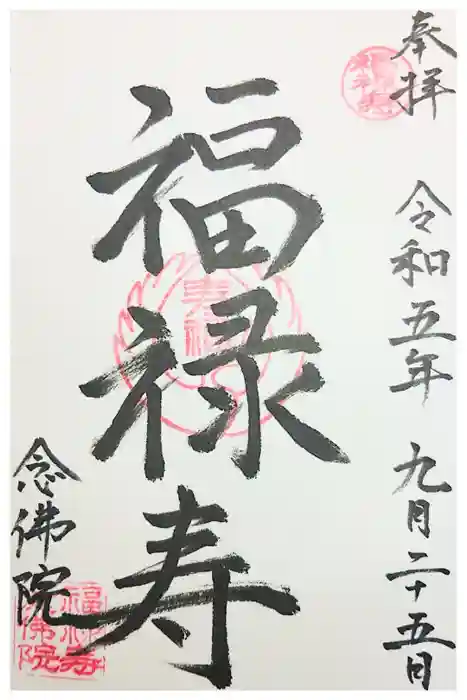 奉拝 令和五年 九月二十五日
福禄寿
念佛院
福禄寿
念佛院